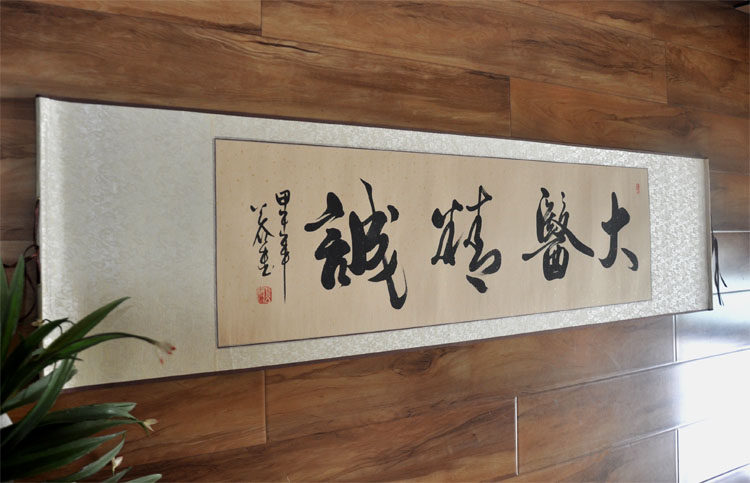 大醫精誠
甲午年